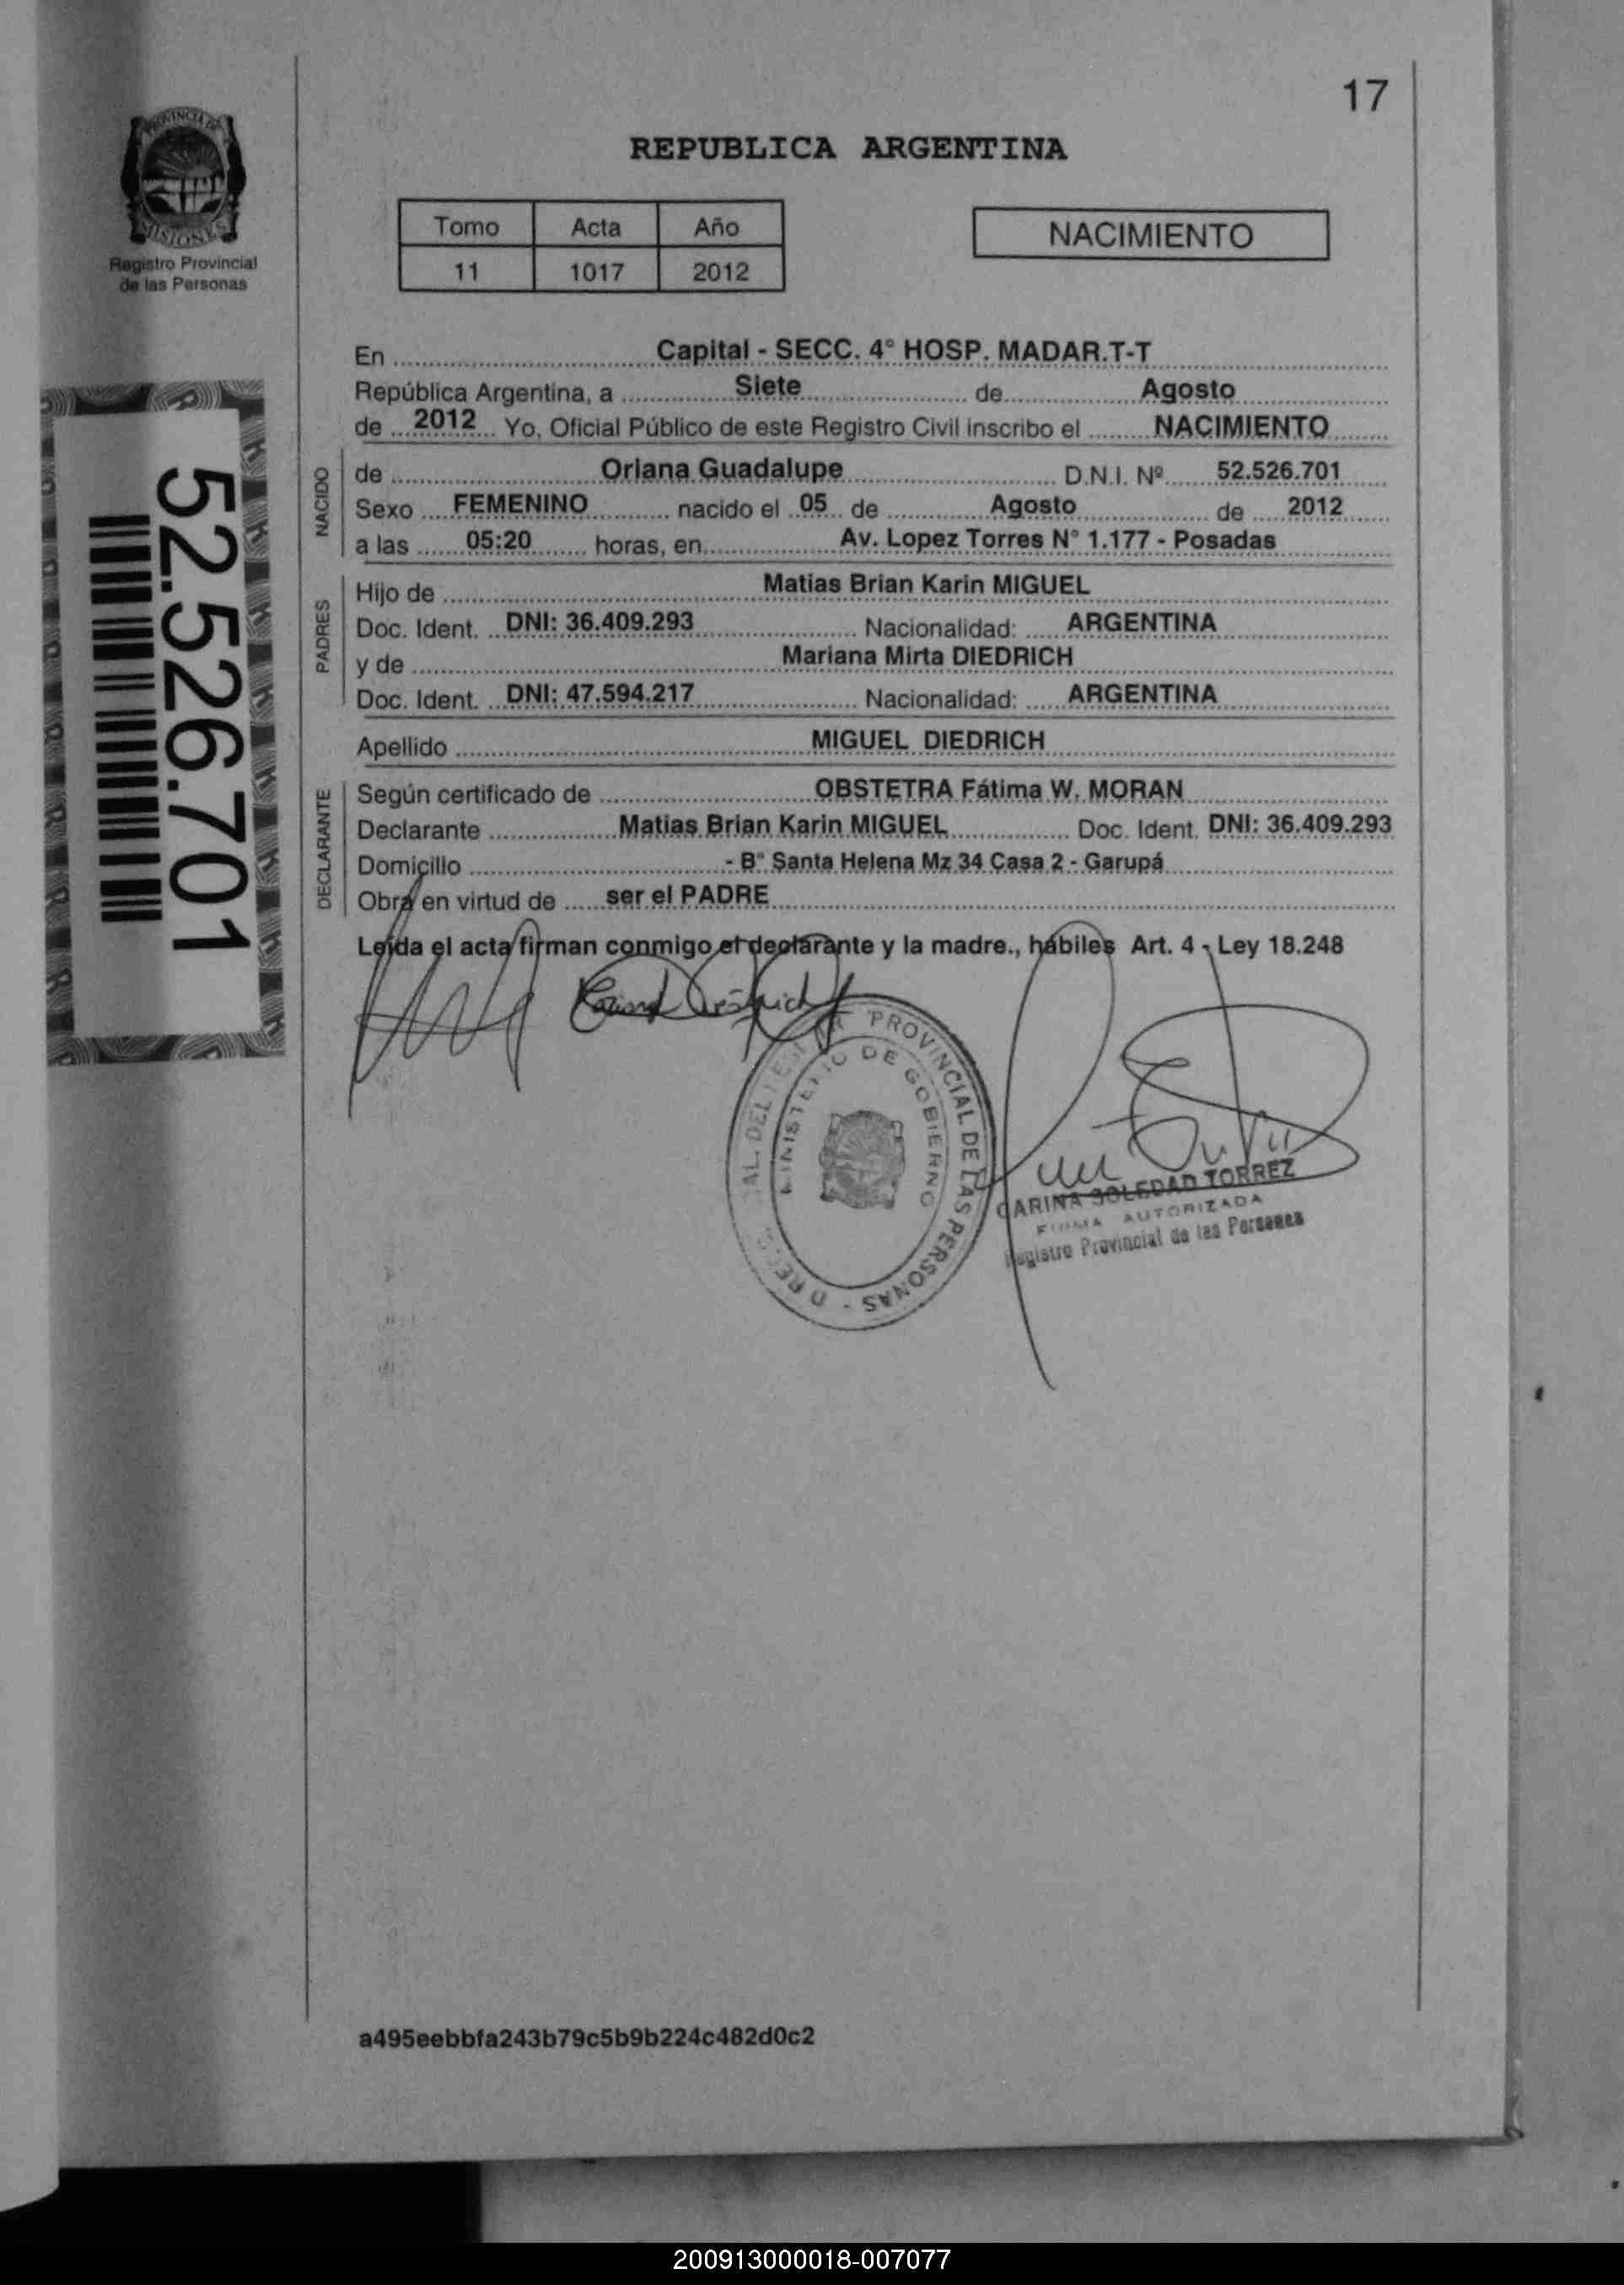 17
REPUBLICA ARGENTINA
PROVINCIA DE
MISIONES
Registro Provincial
de las Personas
Tomo Acta Año
11 1017 2012
NACIMIENTO
En Capital - SECC. 4° HOSP. MADAR.T-T
República Argentina, a Siete de Agosto
de 2012 Yo, Oficial Público de este Registro Civil inscribo el NACIMIENTO
NACIDO
de Oriana Guadalupe D.N.I. Nº 52.526.701
Sexo FEMENINO nacido el 05 de Agosto de 2012
a las 05:20 horas, en Av. Lopez Torres N° 1.177 - Posadas
PADRES
Hijo de Matias Brian Karin MIGUEL
Doc. Ident. DNI: 36.409.293 Nacionalidad: ARGENTINA
y de Mariana Mirta DIEDRICH
Doc. Ident. DNI: 47.594.217 Nacionalidad: ARGENTINA
Apellido MIGUEL DIEDRICH
DECLARANTE
Según certificado de OBSTETRA Fátima W. MORAN
Declarante Matias Brian Karin MIGUEL Doc. Ident. DNI: 36.409.293
Domicilio - B° Santa Helena Mz 34 Casa 2 - Garupá
Obra en virtud de ser el PADRE
Leída el acta firman conmigo el declarante y la madre., hábiles Art. 4 - Ley 18.248
52.526.701
PROVINCIAL DE LAS PERSONAS
MINISTERIO DE GOBIERNO
CARINA SOLEDAD TORREZ
FIRMA AUTORIZADA
Registro Provincial de las Personas
a495eebbfa243b79c5b9b224c482d0c2
200913000018-007077